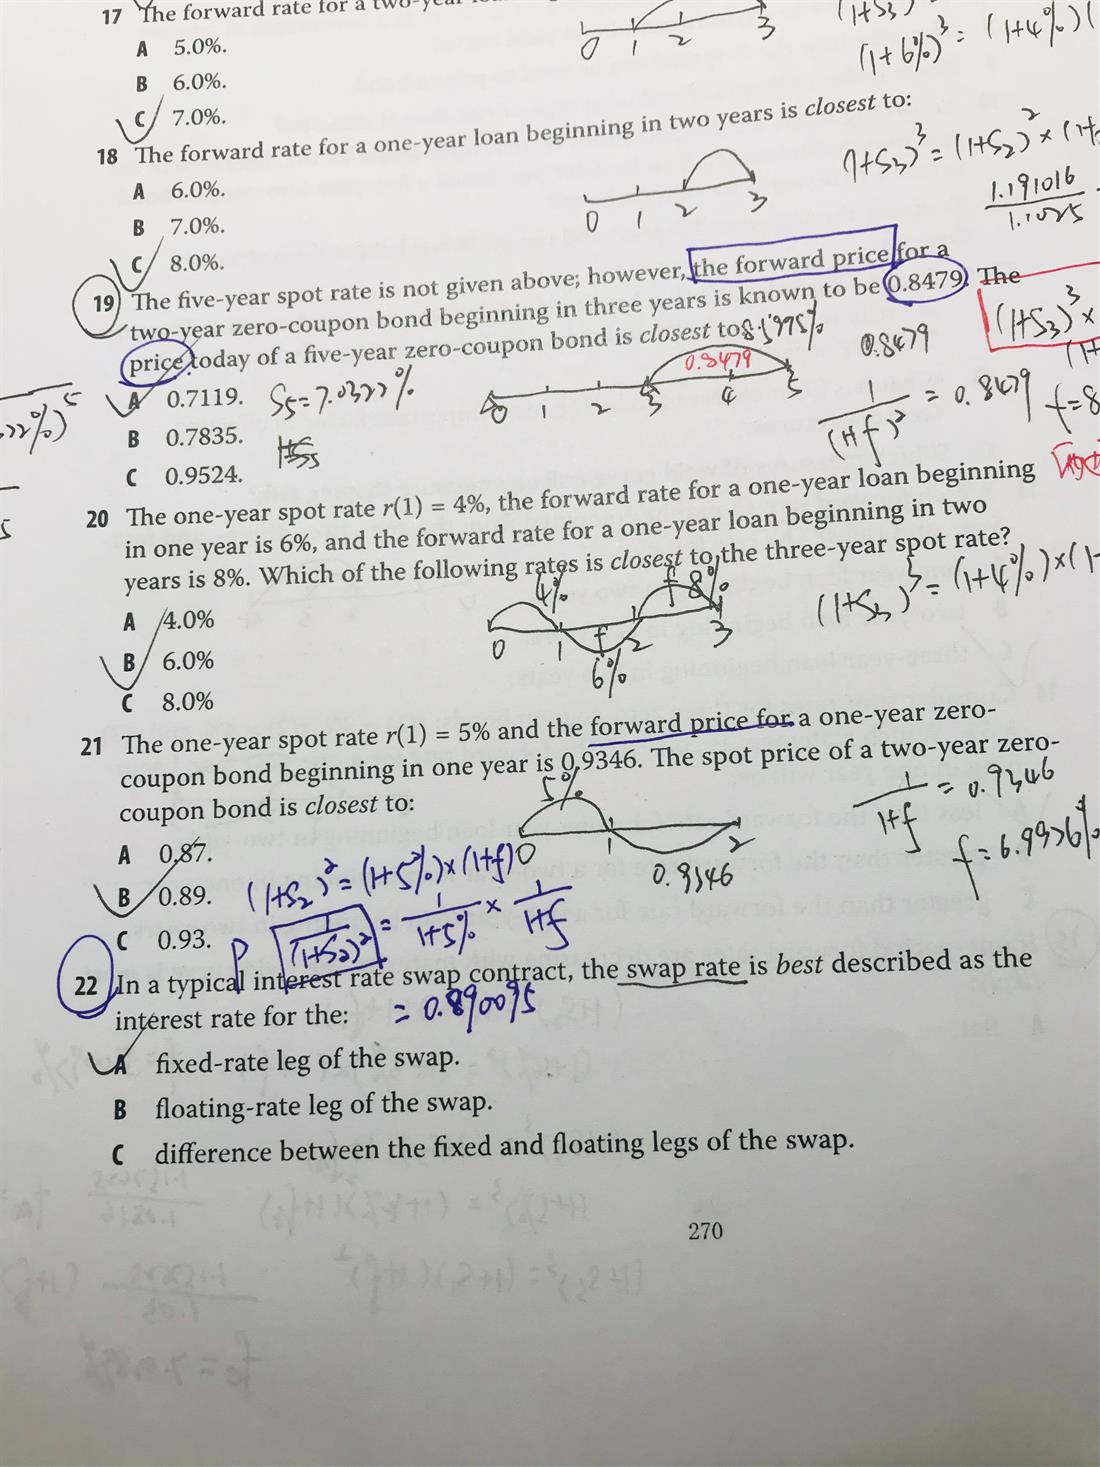 17 The forward rate for a two-year
A 5.0%.
B 6.0%.
C 7.0%.
0 1 2 3
(1+S3)
(1+6%)³ = (1+4%)(
18 The forward rate for a one-year loan beginning in two years is closest to:
A 6.0%.
B 7.0%.
C 8.0%.
0 1 2 3
(1+S3)³ = (1+S2)² × (1+
1.191016
1.1025
19 The five-year spot rate is not given above; however, the forward price for a
two-year zero-coupon bond beginning in three years is known to be 0.8479. The
price today of a five-year zero-coupon bond is closest to:
A 0.7119.
B 0.7835.
C 0.9524.
S5=7.0322%
1+S5
8.5975%
0.8479
0 1 2 3 4 5
0.8479
1/(1+f)² = 0.8479
f=8
(1+S3)³ ×
(1+
22%)⁵
5
20 The one-year spot rate r(1) = 4%, the forward rate for a one-year loan beginning
in one year is 6%, and the forward rate for a one-year loan beginning in two
years is 8%. Which of the following rates is closest to the three-year spot rate?
A 4.0%
B 6.0%
C 8.0%
4% f 8%
0 1 f 2 3
6%
(1+S3)³ = (1+4%)×(1+
21 The one-year spot rate r(1) = 5% and the forward price for a one-year zero-
coupon bond beginning in one year is 0.9346. The spot price of a two-year zero-
coupon bond is closest to:
A 0.87.
B 0.89.
C 0.93.
5%
0 1 2
0.9346
1/1+f = 0.9346
f=6.9976%
(1+S2)² = (1+5%)×(1+f)
P 1/(1+S2)² = 1/1+5% × 1/1+f
= 0.890095
22 In a typical interest rate swap contract, the swap rate is best described as the
interest rate for the:
A fixed-rate leg of the swap.
B floating-rate leg of the swap.
C difference between the fixed and floating legs of the swap.
270